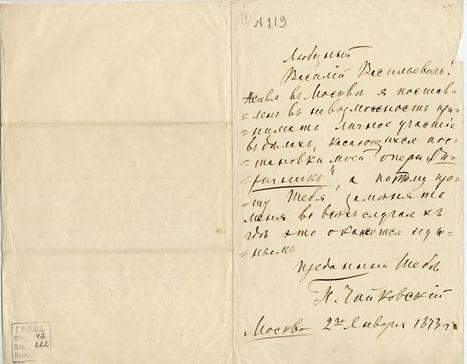 № 219
Любезный
Василій Васильевичъ!
Живя въ Москвѣ я постав-
ленъ въ невозможность при-
нимать личное участіе
въ дѣлахъ, касающихся пос-
тановки моей оперы „Оп-
ричникъ“, а потому про-
шу Тебя, замѣнять
меня во всѣхъ случаяхъ
гдѣ это окажется нуж-
нымъ
Преданный Тебѣ
П. Чайковскій
Москва 2го Января 1873 г.
42
282